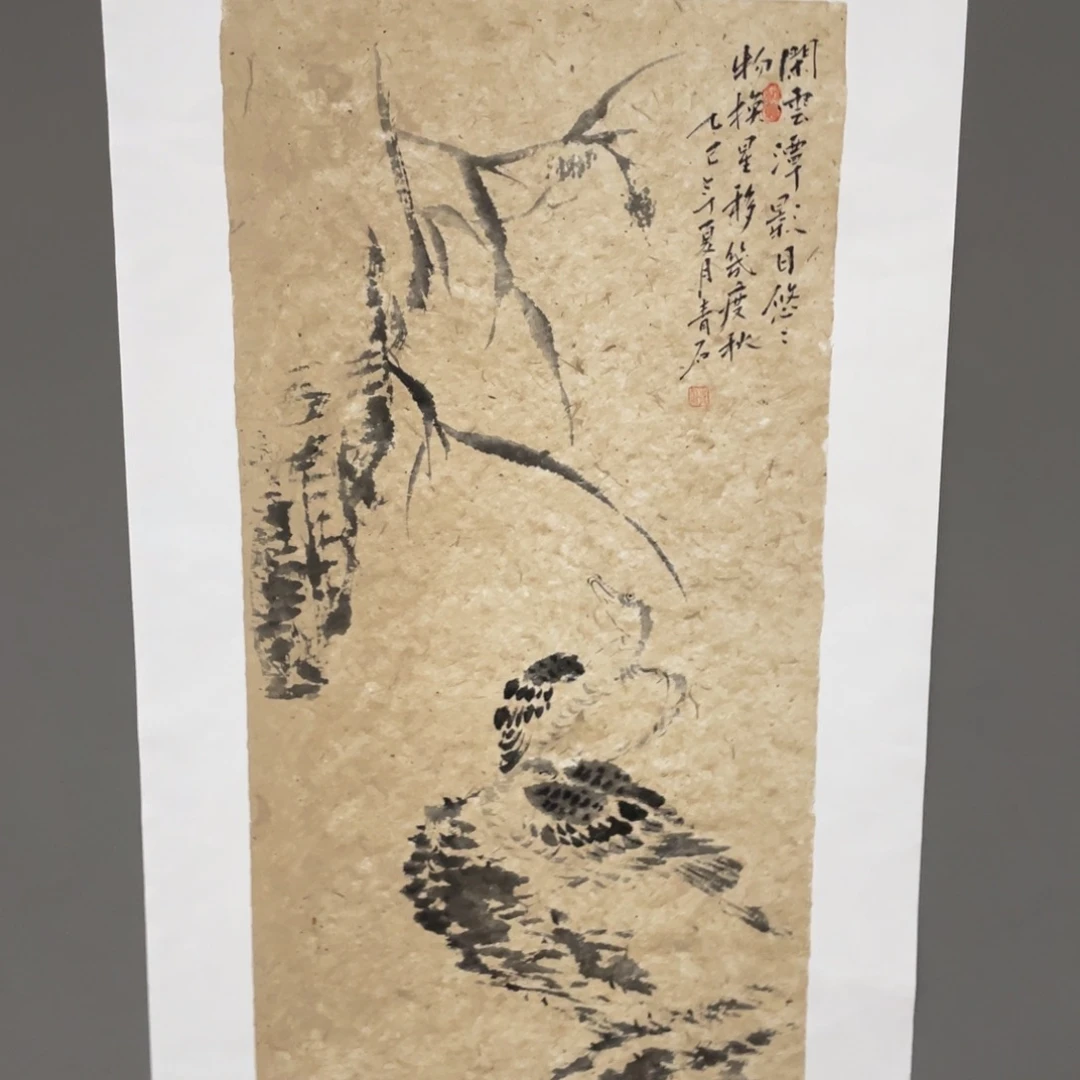 閑雲潭影日悠〻
物換星移幾度秋
乙巳夏月青石